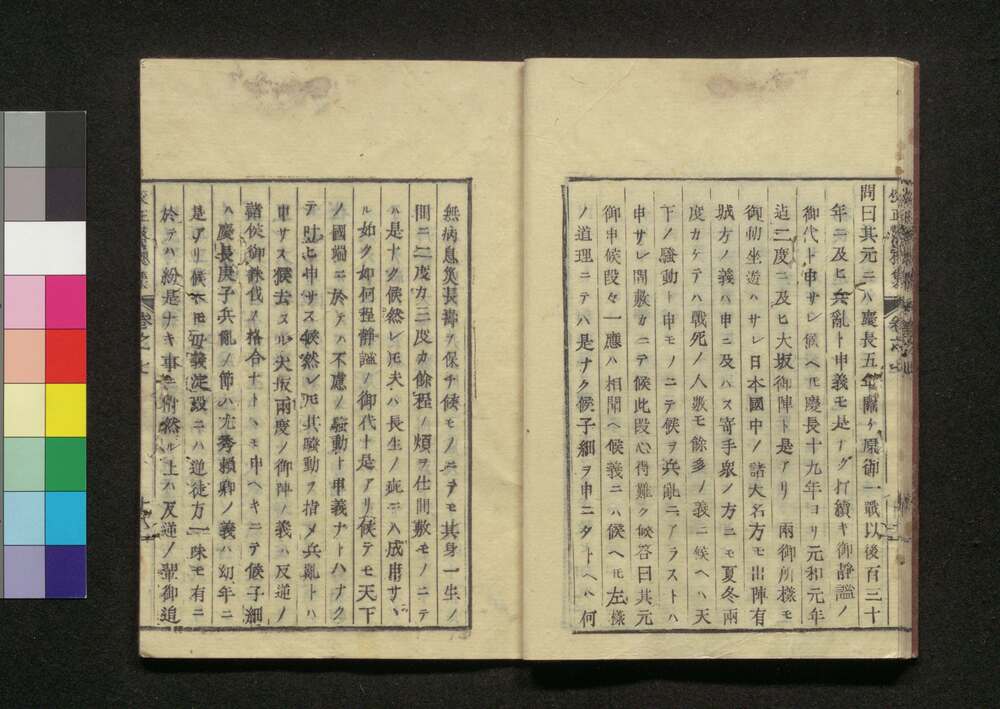 問曰其元ニハ慶長五年關ケ原御一戰以後百三十
年ニ及ヒ兵亂ト申義モ是ナク打續キ御靜謐ノ
御代ト申サレ候ヘ𪜈慶長十九年ヨリ元和元年
迠二度ニ及ヒ大坂御陣ト是アリ 兩御所樣モ
御動坐遊ハサレ日本國中ノ諸大名方モ出陣有
城方ノ義ハ申ニ及ハス寄手衆ノ方ニモ夏冬兩
度カケテハ戰死ノ人數モ餘多ノ義ニ候ヘハ天
下ノ騷動ト申モノニテ候ヲ兵亂ニアラストハ
申サレ間敷カニテ候此段心得難ク候答曰其元
御申候段々一應ハ相聞ヘ候義ニハ候ヘ𪜈左樣
ノ道理ニテハ是ナク候子細ヲ申ニタトヘハ何
無病息災長壽ヲ保チ候モノニテモ其身一生ノ
間ニ二度カ三度カ餘程ノ煩ヲ仕間敷モノニテ
ハ是ナク候然レ𪜈夫ハ長生ノ疵ニハ成申サヽ
ル如ク如何程靜謐ノ御代ト是アリ候テモ天下
ノ國端ニ於テハ不慮ノ騷動ト申義ナトハナク
テ叶ヒ申サス候然レ𪜈其騷動ヲ指メ兵亂トハ
申サス候去スル大坂兩度ノ御陣ノ義ハ反逆ノ
諸侯御誅伐ノ格合ナトヽモ申ヘキニテ候子細
ハ慶長庚子兵亂ノ節ハ尤秀賴卿ノ義ハ幼年ニ
是アリ候ヘ𪜈毎義淀殿ニハ逆徒方一味モ有ニ
於テハ紛是ナキ事ニ候然ル上ハ反逆ノ輩御追
卷之七